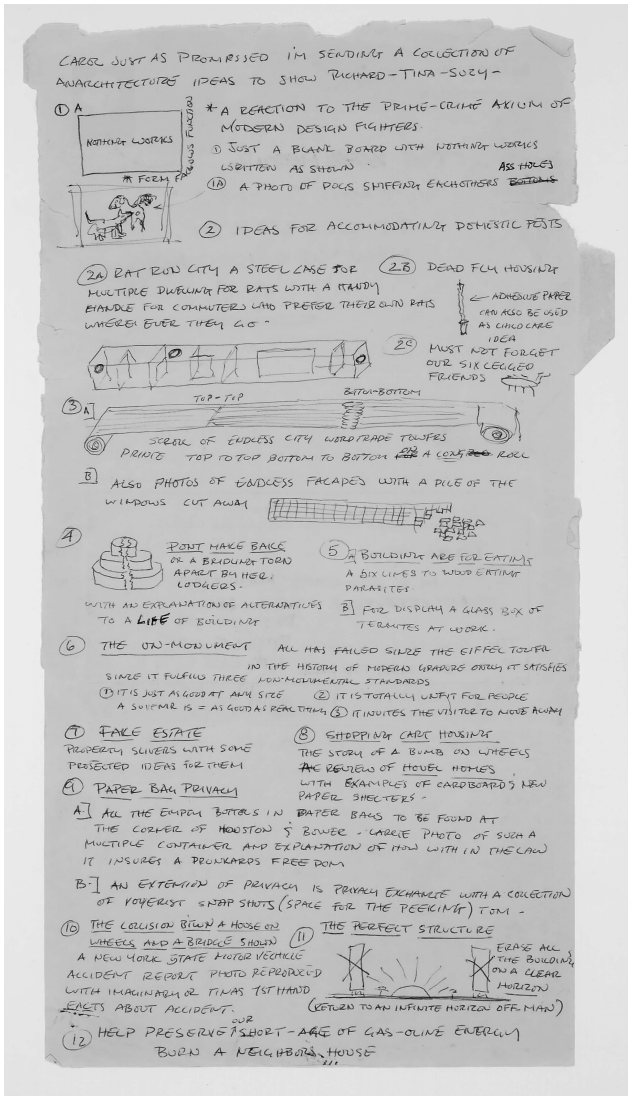 CAROL JUST AS PROMISSED I'M SENDING A COLLECTION OF
ANARCHITECTURE IDEAS TO SHOW RICHARD-TINA-SUZY-
① A
NOTHING WORKS
FORM FALLOWS FUNCTION
* A REACTION TO THE PRIME-CRIME AXIUM OF
MODERN DESIGN FIGHTERS.
① JUST A BLANK BOARD WITH NOTHING WORKS
WRITTEN AS SHOWN
1A A PHOTO OF DOGS SNIFFING EACHOTHERS BOTTOMS ASS HOLES
② IDEAS FOR ACCOMMODATING DOMESTIC PESTS
2A RAT RUN CITY A STEEL CASE FOR
MULTIPLE DWELLING FOR RATS WITH A HANDY
HANDLE FOR COMMUTERS WHO PREFER THEIR OWN RATS
WHERE EVER THEY GO -
2B DEAD FLY HOUSING
← ADHESIVE PAPER
CAN ALSO BE USED
AS CHILD CARE
IDEA
2C MUST NOT FORGET
OUR SIX LEGGED
FRIENDS
③ A]
TOP-TOP
BOTTOM-BOTTOM
SCROLL OF ENDLESS CITY WORDTRADE TOWERS
PRINTE TOP TO TOP BOTTOM TO BOTTOM ON A LONG ROLL
B] ALSO PHOTOS OF ENDLESS FACADES WITH A PILE OF THE
WINDOWS CUT AWAY
④ DONT MAKE BAKE
OR A BRIDLING TORN
APART BY HER
LODGERS.
WITH AN EXPLANATION OF ALTERNATIVES
TO A LIFE OF BUILDING
5 A] BUILDING ARE FOR EATING
A DIX LINES TO WOOD EATING
PARASITES
B] FOR DISPLAY A GLASS BOX OF
TERMITES AT WORK.
⑥ THE ON-MONUMENT ALL HAS FAILED SINCE THE EIFFEL TOWER
IN THE HISTORY OF MODERN GRADURE ONLY IT SATISFIES
SINCE IT FULFILLS THREE NON-MONUMENTAL STANDARDS
① IT IS JUST AS GOOD AT ANY SIZE ② IT IS TOTALLY UNFIT FOR PEOPLE
A SUVENIR IS = AS GOOD AS REAL THING ③ IT INVITES THE VISITOR TO MOVE AWAY
⑦ FAKE ESTATE
PROPERTY SLIVERS WITH SOME
PROJECTED IDEAS FOR THEM
⑧ SHOPPING CART HOUSING
THE STORY OF A BUMB ON WHEELS
REVIEW OF HOVEL HOMES
WITH EXAMPLES OF CARDBOARD & NEW
PAPER SHELTERS -
⑨ PAPER BAG PRIVACY
A] ALL THE EMPTY BOTTELS IN PAPER BAGS TO BE FOUND AT
THE CORNER OF HOUSTON & BOWER - LARGE PHOTO OF SUCH A
MULTIPLE CONTAINER AND EXPLANATION OF HOW WITH IN THE LAW
IT INSURES A DRUNKARDS FREEDOM
B-] AN EXTENTION OF PRIVACY IS PRIVACY EXCHANGE WITH A COLLECTION
OF VOYERIST SNAP SHOTS (SPACE FOR THE PEEKING) TOM -
⑩ THE COLLISION BTWN A HOUSE ON
WHEELS AND A BRIDGE SHOWN
A NEW YORK STATE MOTOR VECHICLE
ACCIDENT REPORT PHOTO REPRODUCED
WITH IMAGINARY OR TINAS 1ST HAND
FACTS ABOUT ACCIDENT.
⑪ THE PERFECT STRUCTURE
ERASE ALL
THE BUILDING
ON A CLEAR
HORIZON
(RETURN TO AN INFINITE HORIZON OFF MAN)
⑫ HELP PRESERVE OUR SHORT-AGE OF GAS-OLINE ENERGY
BURN A NEIGHBORS HOUSE